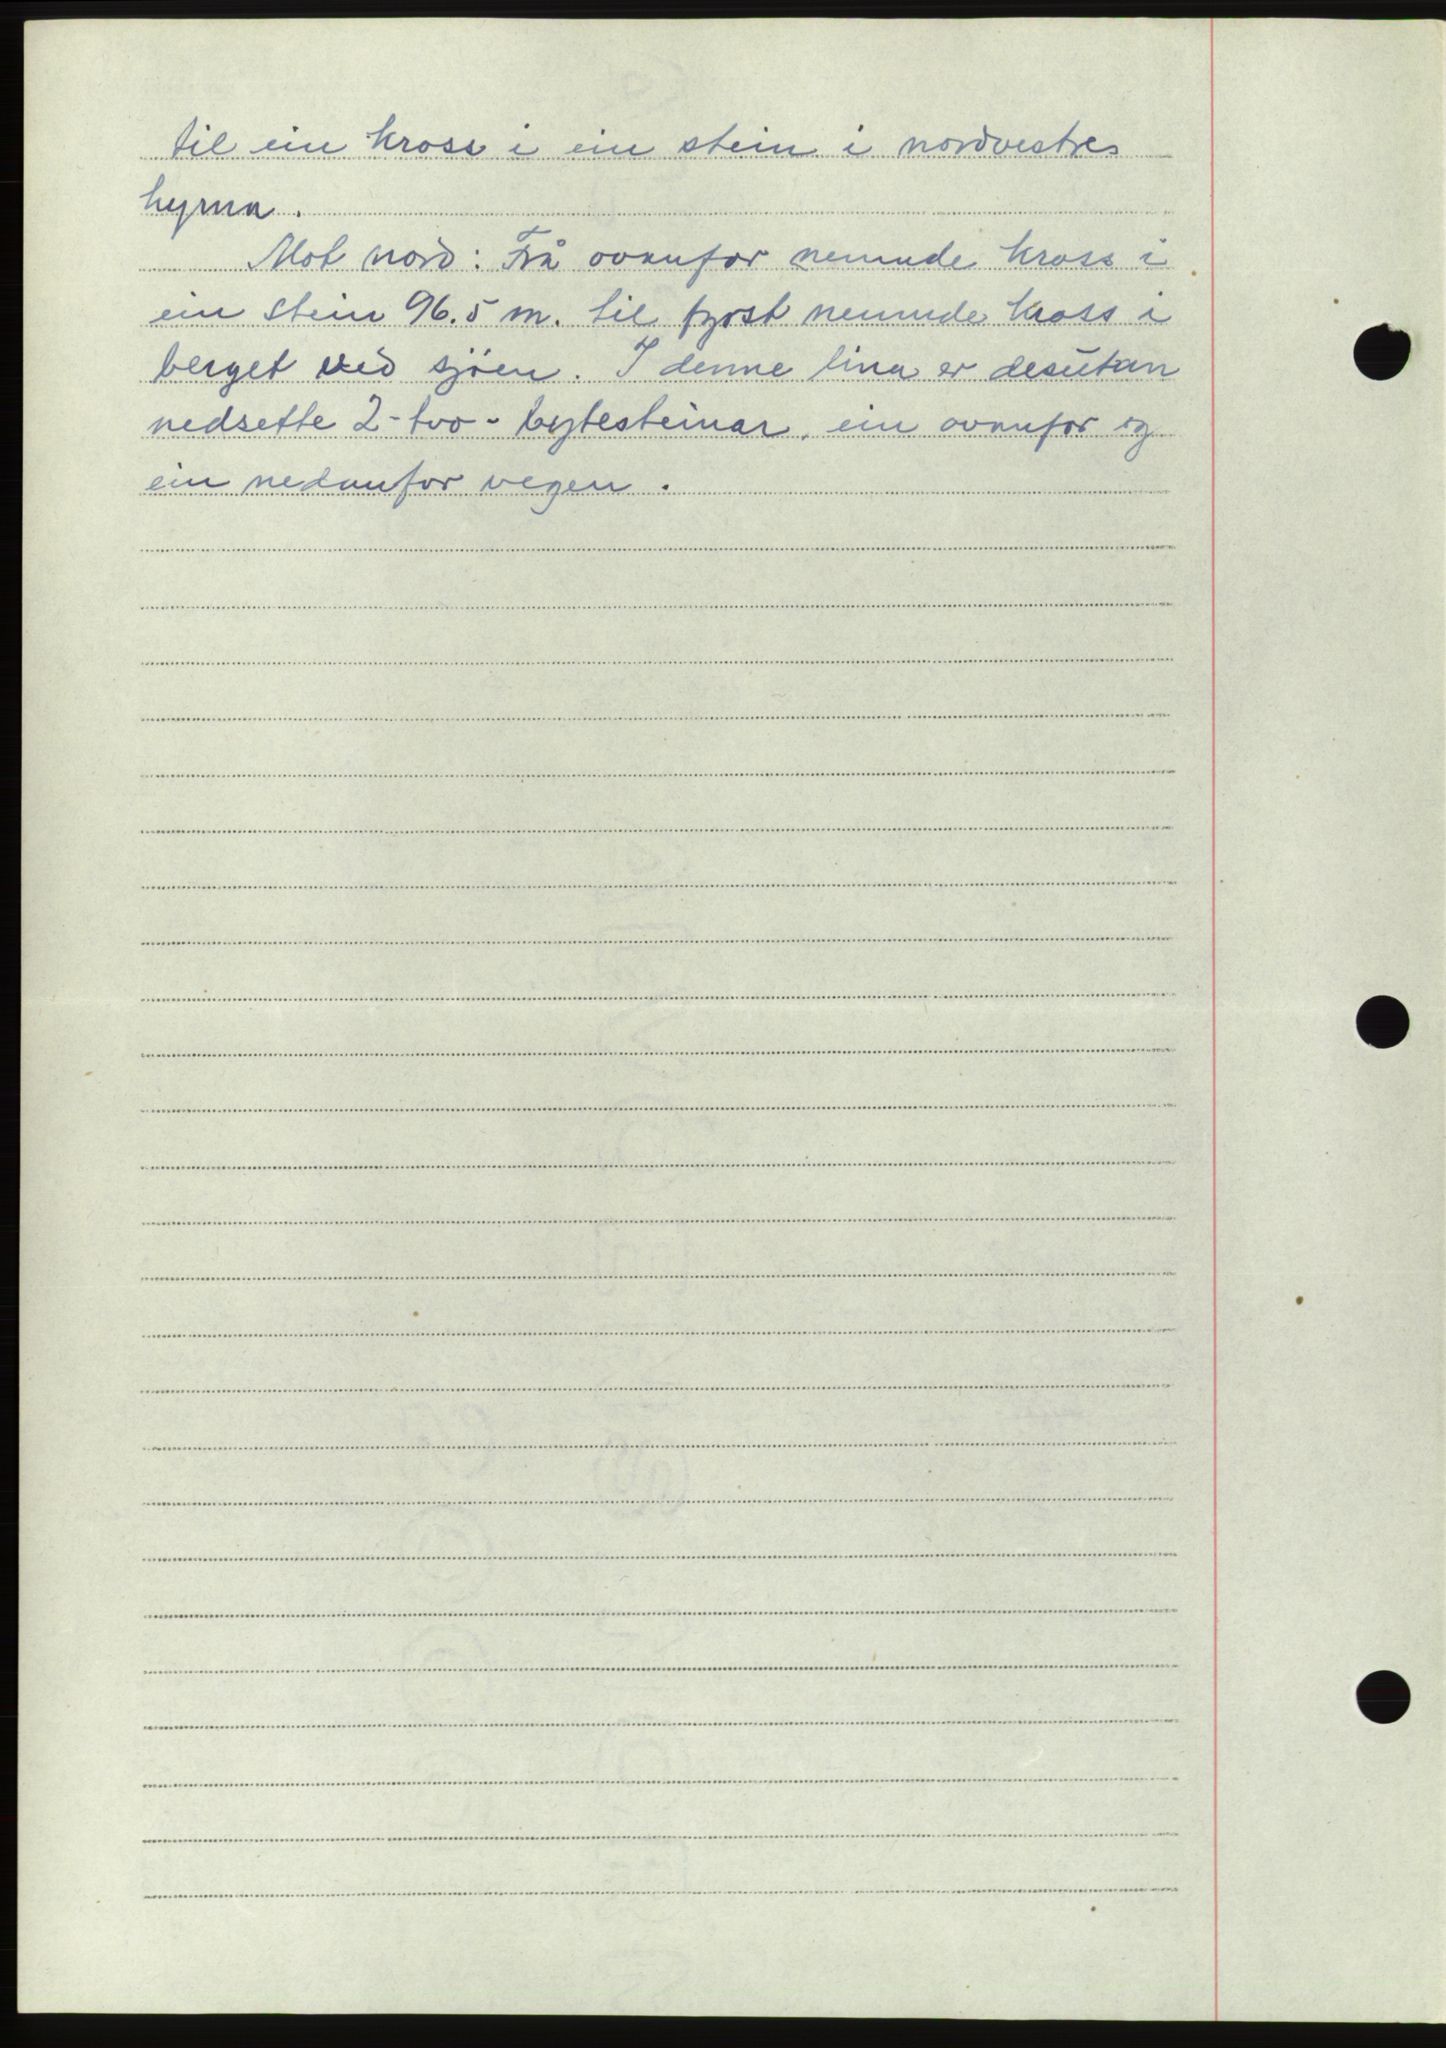 til ein kross i ein stein i nordvestre
hyrna.
Mot nord: Frå ovanfor nemnde kross i
ein stein 96.5 m. til fyrst nemnde kross i
berget ved sjöen. I denne lina er desutan
nedsette 2-tvo- bytesteinar, ein ovanfor og
ein nedanfor vegen.